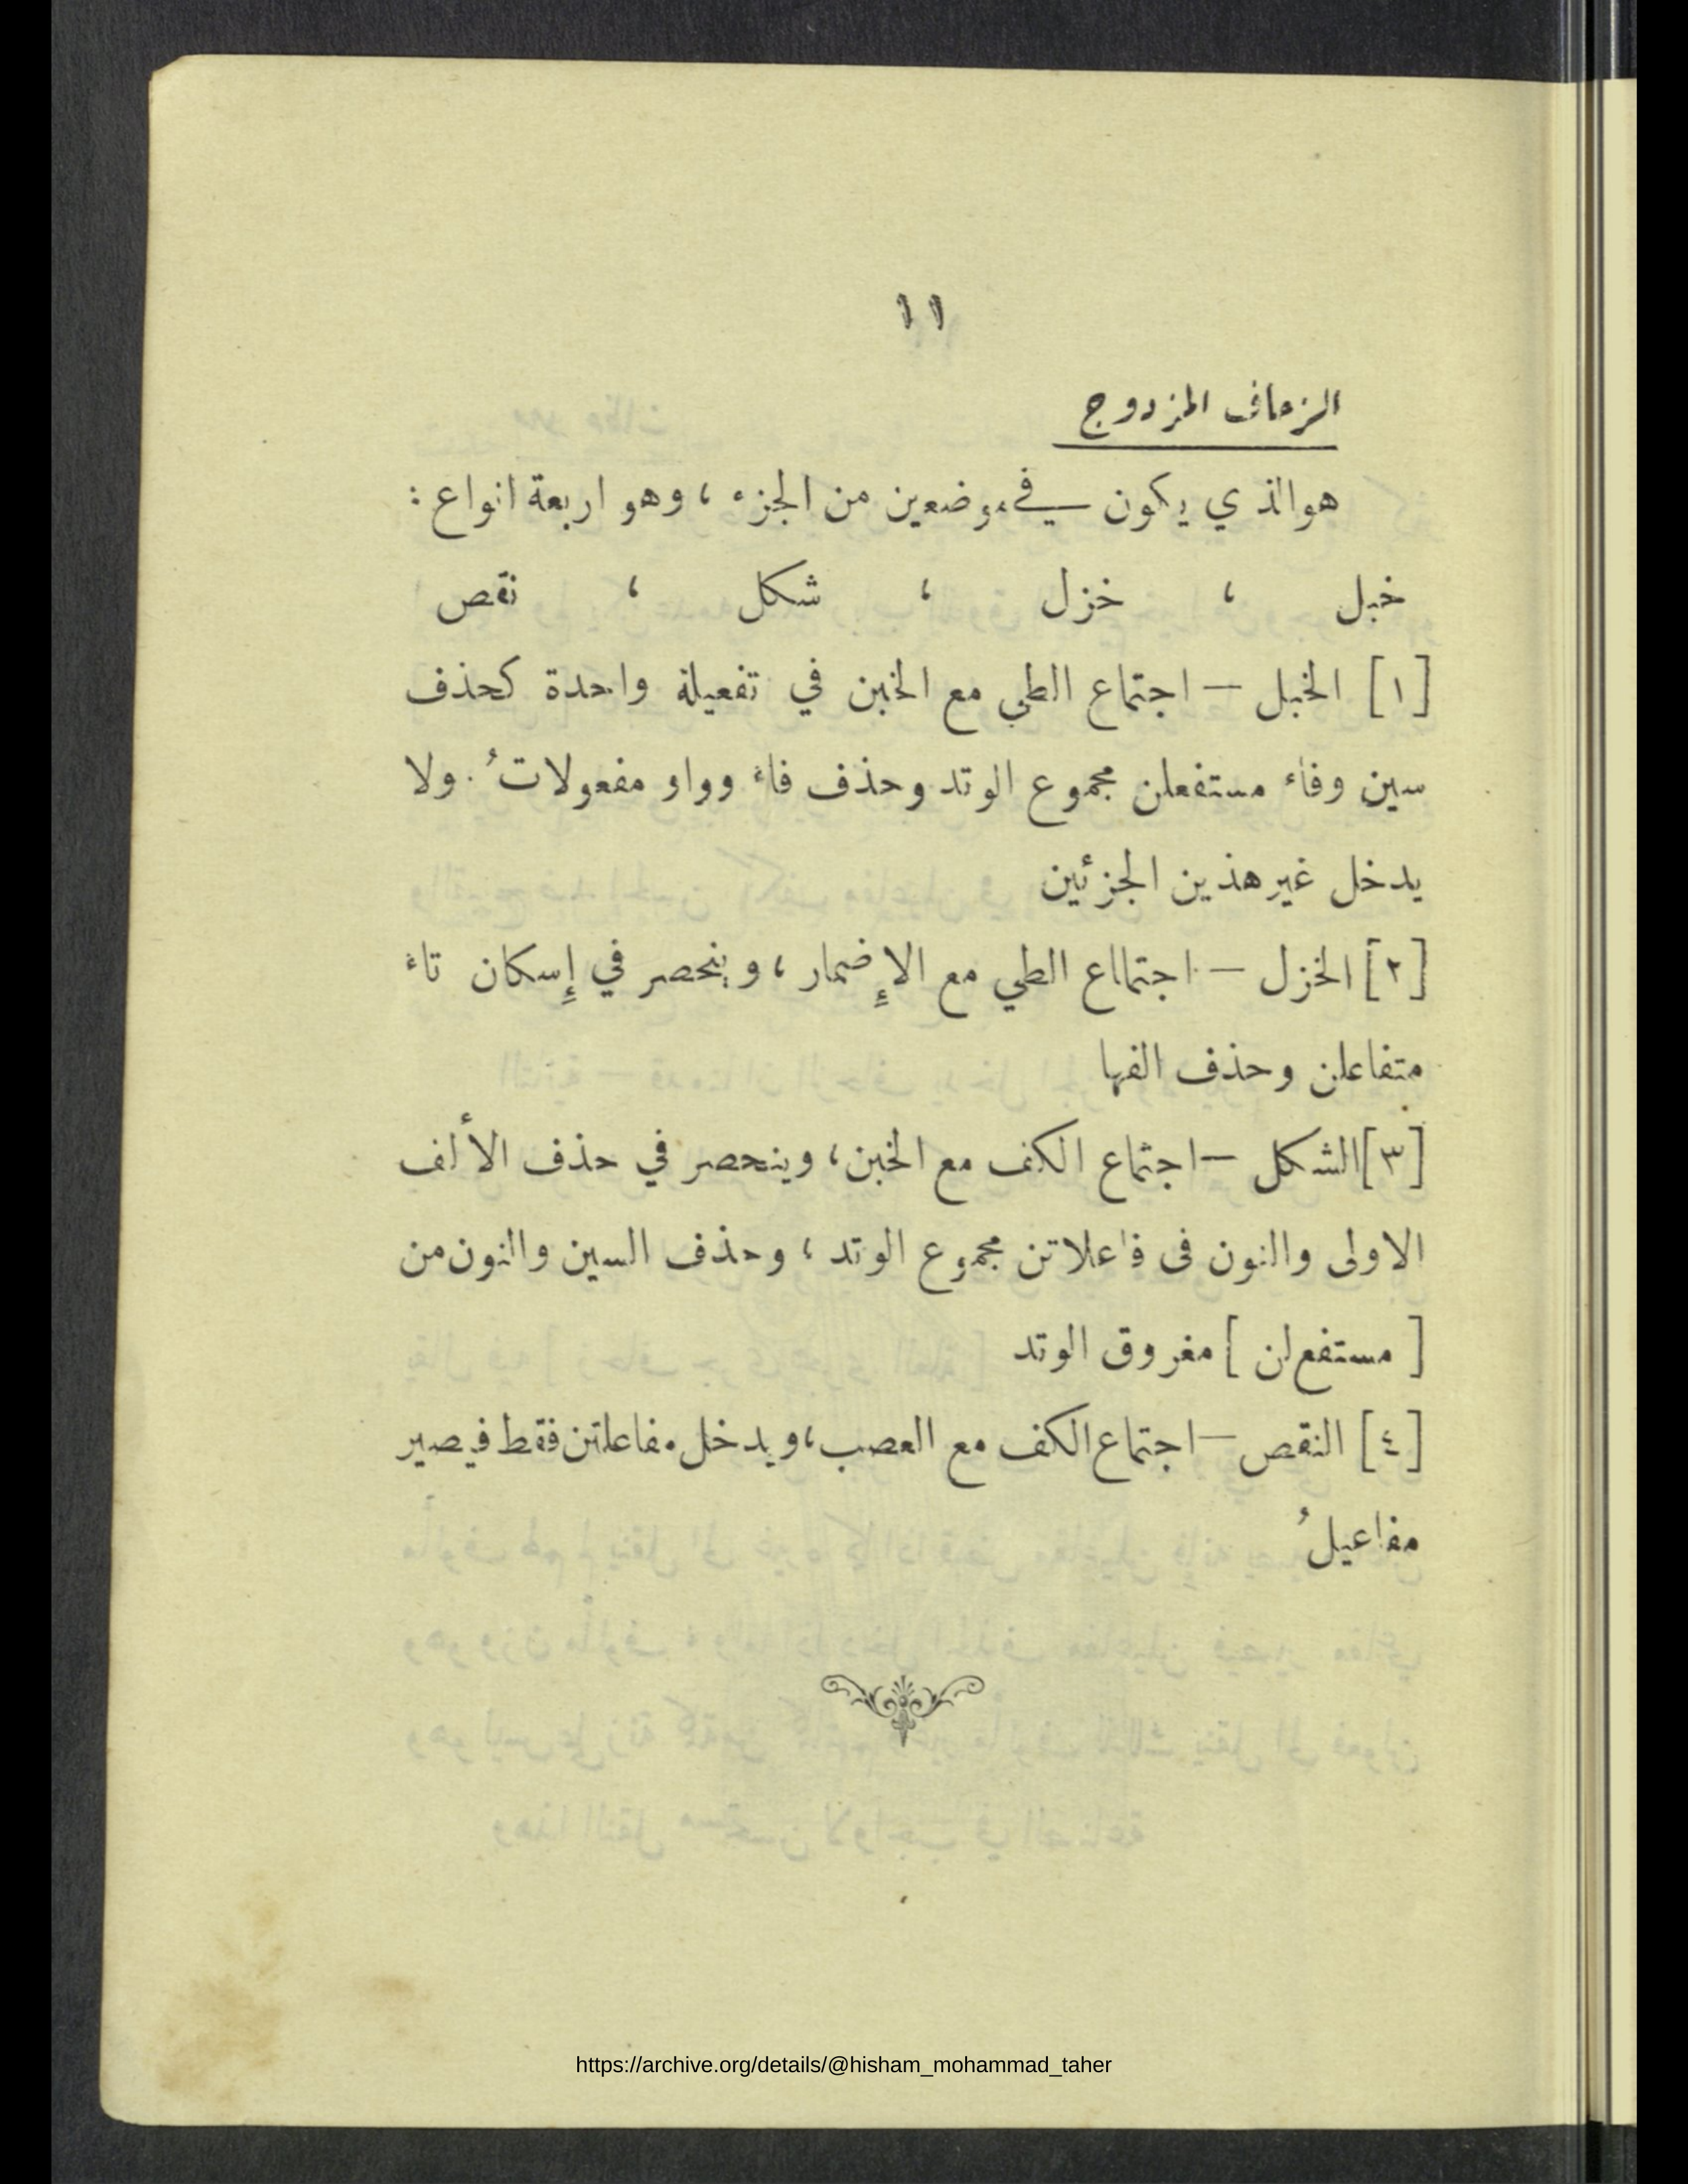 ١١
الزحاف المزدوج
هو الذي يكون في موضعين من الجزء ، وهو اربعة انواع :
خبل ، خزل ، شكل ، نقص
[١] الخبل — اجتماع الطي مع الخبن في تفعيلة واحدة كحذف
سين وفاء مستفعلن مجموع الوتد وحذف فاء وواو مفعولاتُ . ولا
يدخل غير هذين الجزئين
[٢] الخزل — اجتمااع الطي مع الإضمار ، وينحصر في إسكان تاء
متفاعلن وحذف الفها
[٣] الشكل — اجتماع الكف مع الخبن ، وينحصر في حذف الألف
الاولى والنون فى فاعلاتن مجموع الوتد ، وحذف السين والنون من
[ مستفع لن ] مفروق الوتد
[٤] النقص — اجتماع الكف مع العصب ، ويدخل مفاعلتن فقط فيصير
مفاعيلُ
https://archive.org/details/@hisham_mohammad_taher